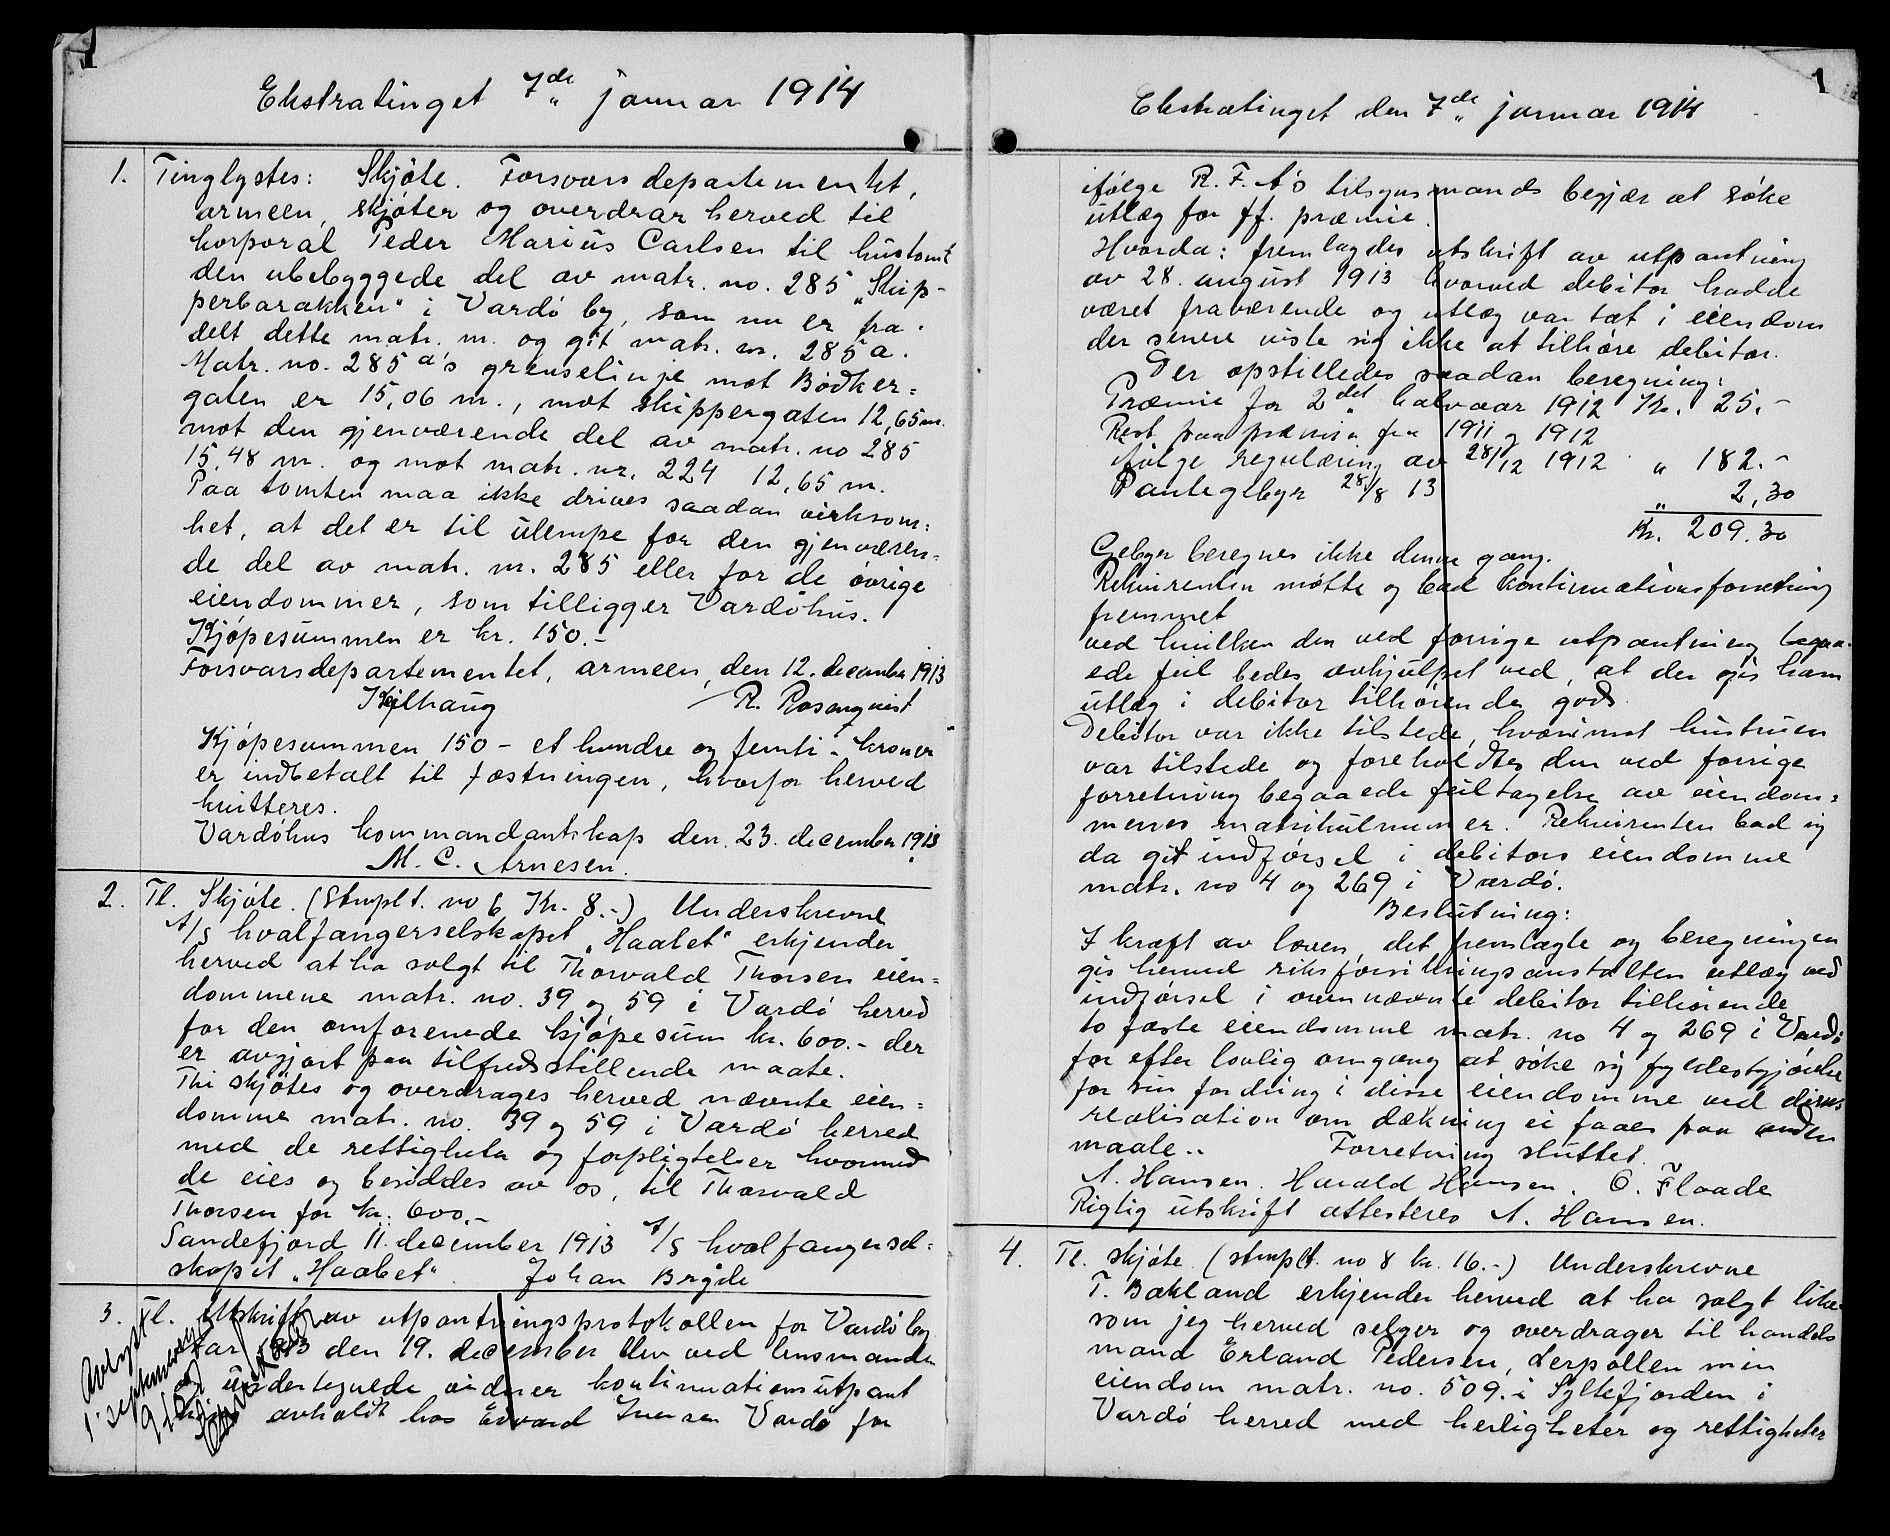 1
Ekstratinget 7de januar 1914
1. Tinglystes: Skjöte. Forsvarsdepartementet,
armeen, skjöter og overdrar herved til
korporal Peder Marius Carlsen til hustomt
den ubebyggede del av matr. no. 285 "Skip-
perbarakken" i Vardö by, som nu er fra-
delt dette matr. nr. og git matr. nr. 285 a.
Matr. no. 285 a's grenselinje mot Bödker=
gaten er 15,06 m., mot Skippergaten 12,65 m.
mot den gjenværende del av matr. no 285
15,48 m. og mot matr. nr. 224 12,65 m.
Paa tomten maa ikke drives saadan virksom=
het, at det er til ulempe for den gjenværen=
de del av matr. nr. 285 eller for de övrige
eiendommer, som tilligger Vardöhus.
Kjöpesummen er kr. 150.-
Forsvarsdepartementet, armeen, den 12. december 1913
Keilhaug R. Rosenqvist
Kjöpesummen 150 - et hundre og femti - kroner
er indbetalt til fæstningen, hvorfor herved
kvitteres.
Vardöhus kommandantskap den 23. december 1913
M. C. Arnesen.
2. Tl. Skjöte. (Stmplt. no 6 Kr. 8.-) Underskrevne
A/S hvalfangerselskapet "Haabet" erkjender
herved at ha solgt til Thorvald Thorsen eien=
dommene matr. no. 39 og 59 i Vardö herred
for den omforenede kjöpesum kr. 600.- der
er avgjort paa tilfredsstillende maate.
Thi skjötes og overdrages herved nævnte eien=
domme matr. no. 39 og 59 i Vardö herred
med de rettigheter og forpligtelser hvormed
de eies og besiddes av os, til Thorvald
Thorsen for kr. 600.-
Sandefjord 11. december 1913 A/S hvalfangersel=
skapet "Haabet". Johan Bryde
3. Tl. Utskrift av utpantningsprotokollen for Vardö by
Aar 1913 den 19. december blev ved lensmanden
i undertegnede vidner kontinuationsutpant
avholdt hos Edvard Iversen Vardö for
Avlyst
1 september
1
Ekstratinget den 7de januar 1914
ifölge R. F. A's tilsynsmands begjær at söke
utlæg for ff. præmie.
Hvorda: fremlagdes utskrift av utpantning
av 28. august 1913 hvorved debitor hadde
været fraværende og utlæg var tat i eiendom
der senere viste sig ikke at tilhöre debitor.
Der opstilledes saadan beregning:
Præmie for 2det halvaar 1912 Kr. 25.-
Rest paa præmie for 1911 og 1912
ifölge regulæring av 28/12 1912 " 182.-
Pantegebyr 28/8 13 " 2,30
Kr. 209.30
Gebyr beregnes ikke denne gang.
Rekvirenten mötte og bad kontinuationsforretning
fremmet
ved hvilken den ved forrige utpantning begaa-
ede feil bedes avhjulpet ved, at der gis ham
utlæg i debitor tilhörende gods.
Debitor var ikke tilstede, hvorimot hustruen
var tilstede og foreholdtes den ved forrige
forretning begaaede feiltagelse av eiendom=
menes matrikulnummer. Rekvirenten bad sig
da git indförsel i debitors eiendomme
matr. no 4 og 269 i Vardö.
Beslutning:
I kraft av loven, det fremlagte og beregningen
gis herved riksforsikringsanstalten utlæg ved
indförsel i ovennævnte debitor tilhörende
to faste eiendomme matr. no 4 og 269 i Vardö
for efter lovlig omgang at söke sig fyldestgjörelse
for sin fordring i disse eiendomme ved disses
realisation om dækning ei faaes paa anden
maate.. Forretning sluttet.
A. Hansen. Harald Hansen. O. Flaade
Rigtig utskrift attesteres A. Hansen.
4. Tl. skjöte (stmplt. no 8 kr. 16.-) Underskrevne
T. Bakland erkjender herved at ha solgt like-
som jeg herved selger og overdrager til handels
mand Erland Pedersen, Lerpollen min
eiendom matr. no. 509. i Syltefjorden i
Vardö herred med herligheter og rettigheter